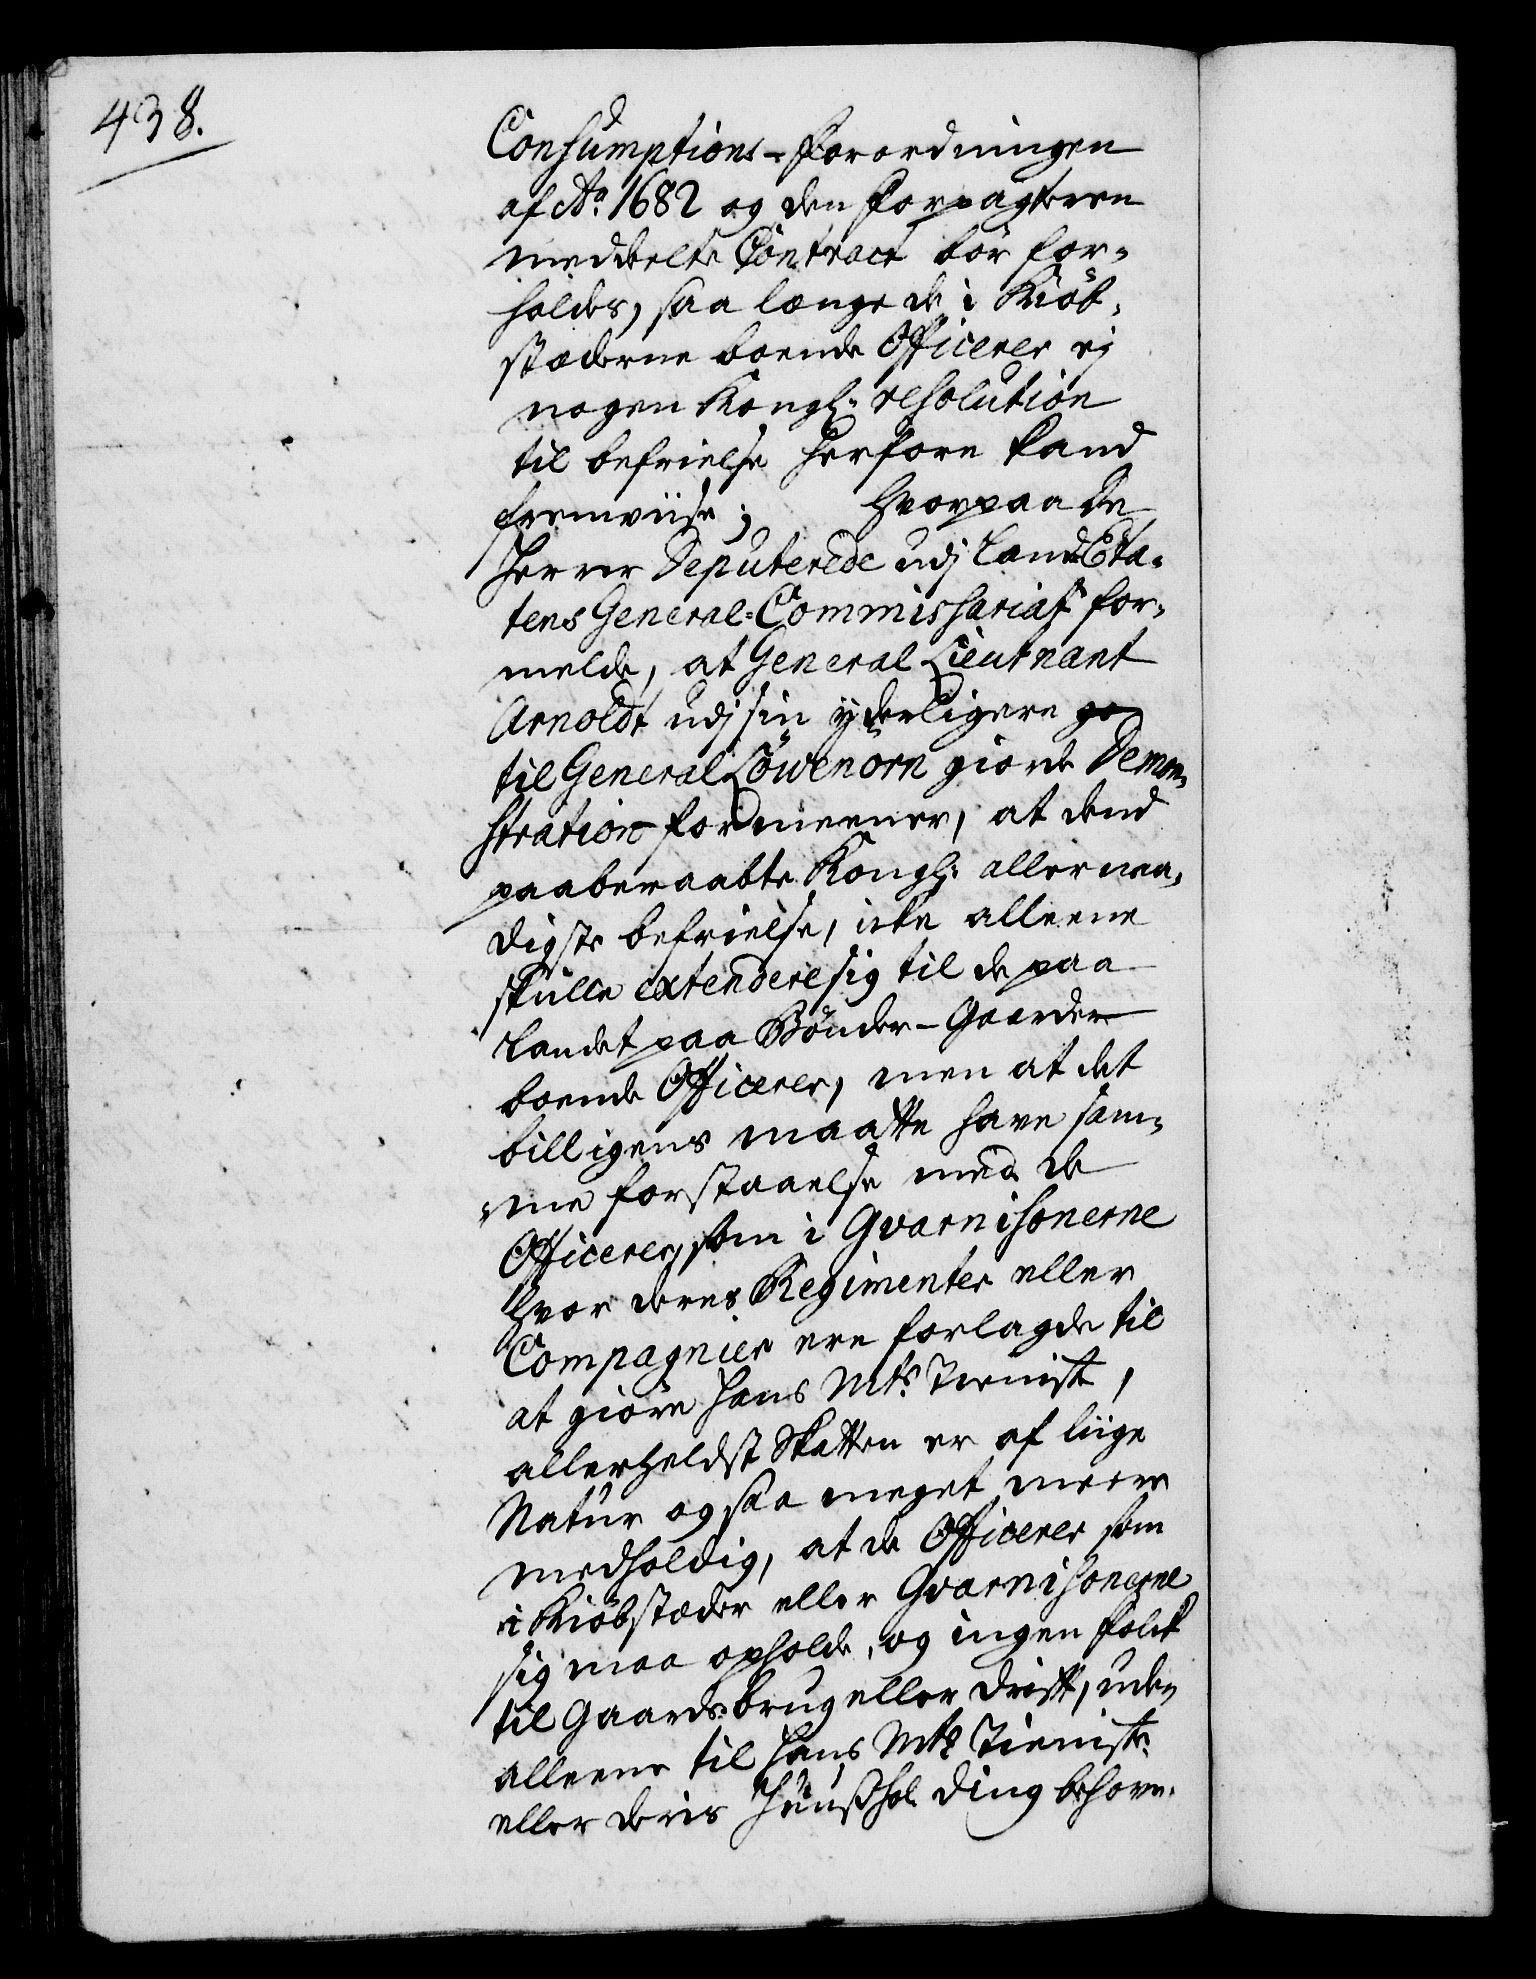 438.
Consumptions-Forordningen
af Ao. 1682 og den Forpagteren
meddeelte Contract bör for-
holdes, saa længe de i Kiöb-
stæderne boende Officerer ej
nogen Kongl: resolution
til befrielse herfore kand
fremviise; hvorpaa de
Herrer Deputerede udj Land Eta-
tens General-Commissariat for-
melde, at General Lieutnant
Arnoldt udj sin yderligere go
til General Löwenörn giorde Demon-
stration formeener, at dend
paaberaabte Kongl: allernaa-
digste befrielse, icke alleene
skulle extendere sig til de paa
Landet paa Bönder-Gaarder
boende Officerer, men at det
billigens maatte have sam-
me forstaaelse med de
Officerer, som i Gvarnisonerne
hvor deres Regimenter eller
Compagnier ere forlagde til
at giöre Hans Mts. Tieniste,
allerheldst Skatten er af liige
Natur og saa meget meere
medholdig, at de Officerer som
i Kiöbstæder eller Gvarnisonerne
sig maa opholde, og ingen Folck
til Gaards brug eller drift, uden
alleene til Hans Mts. Tieniste
eller deris Huusholding behöve.